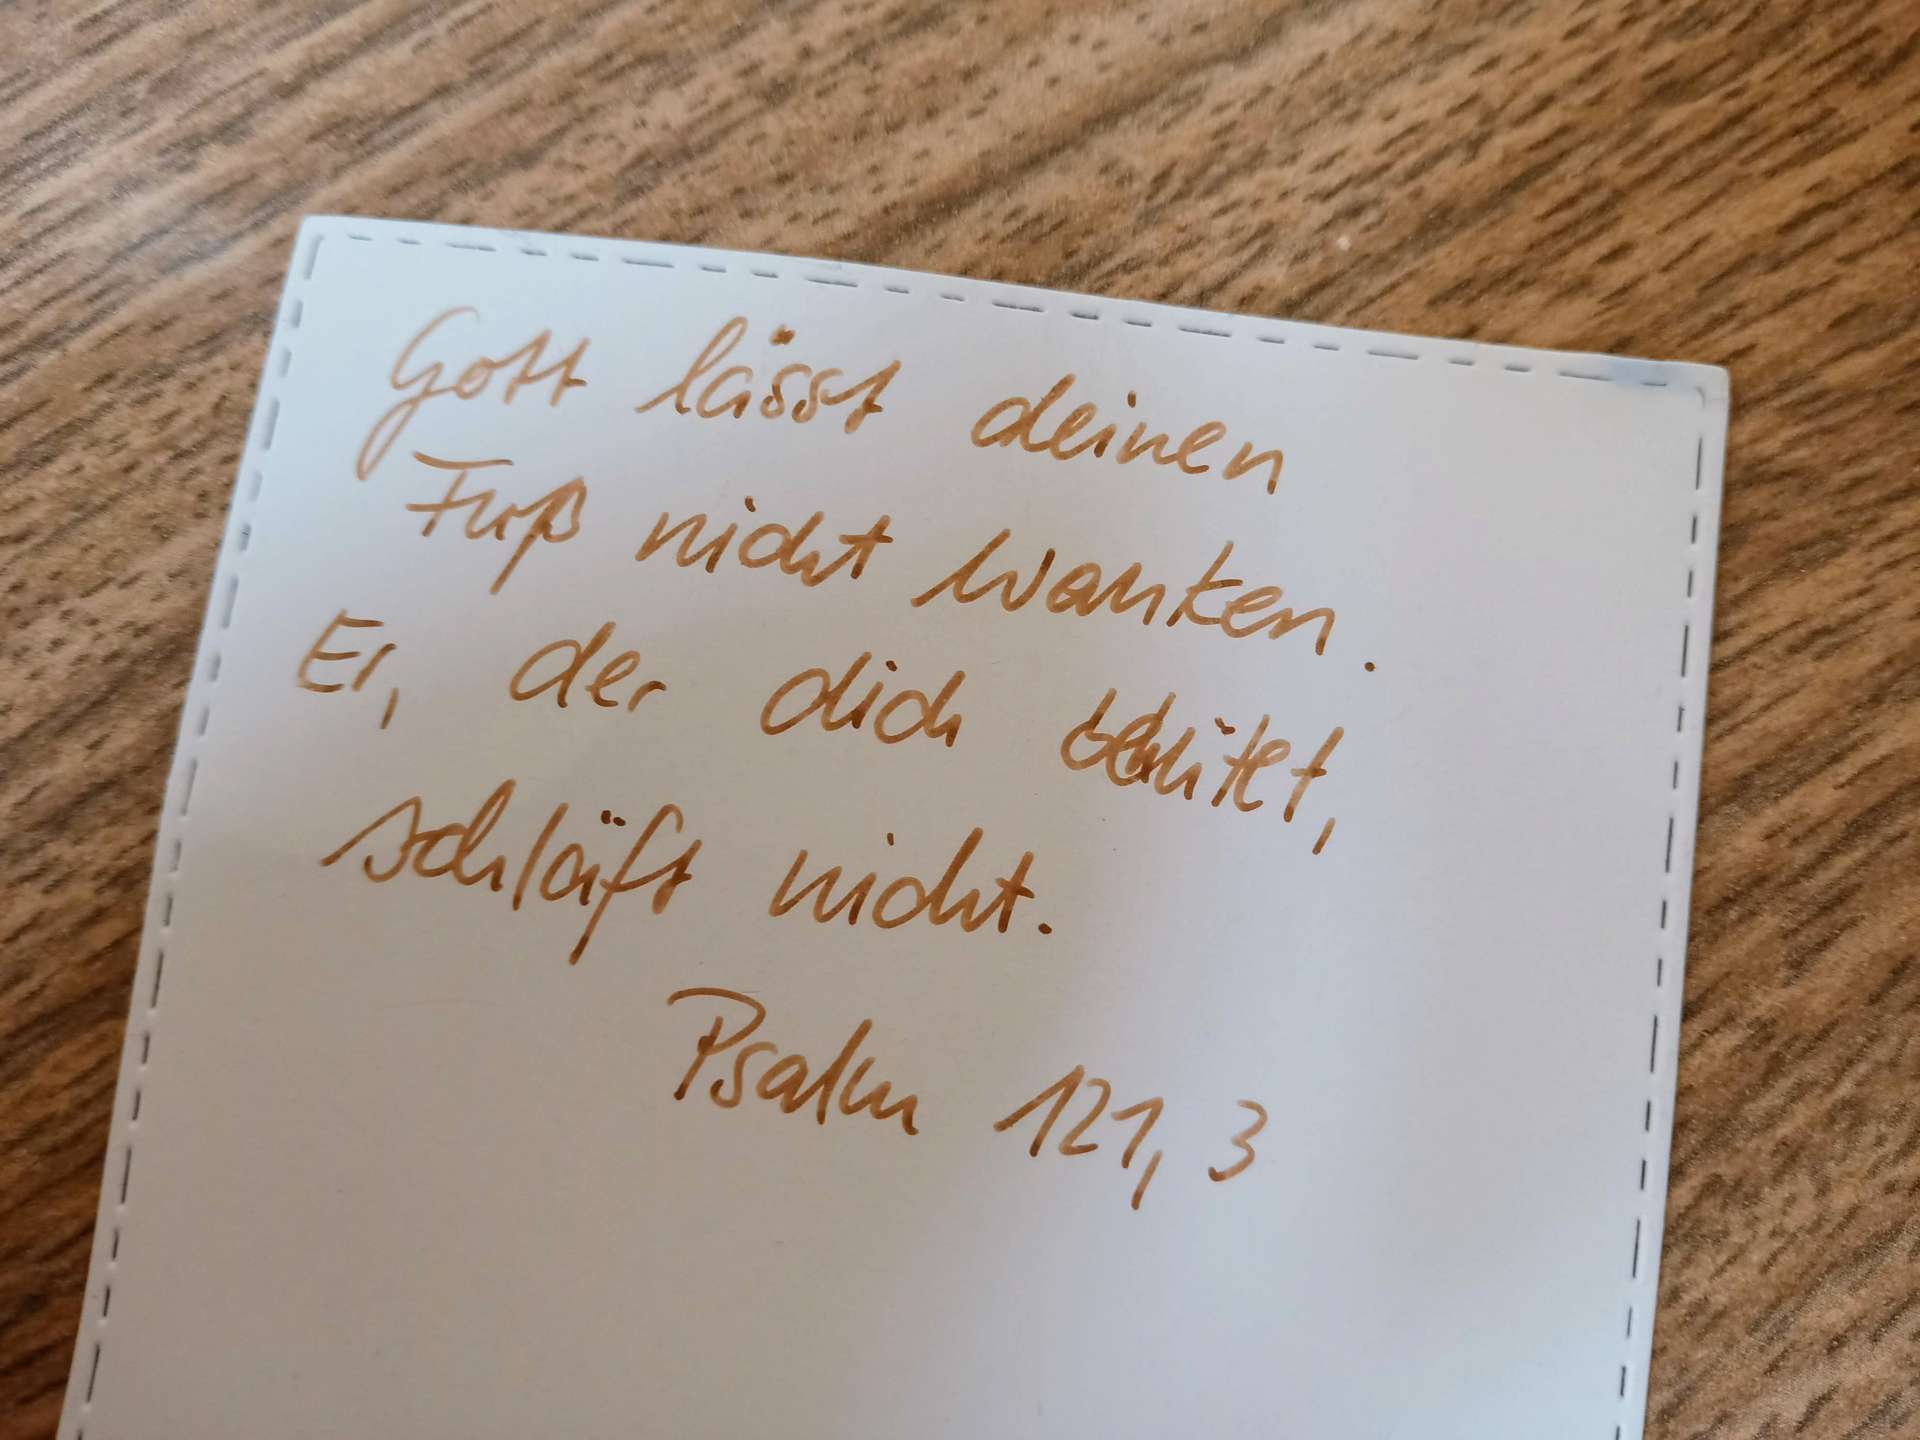 Gott lässt deinen
Fuß nicht wanken.
Er, der dich behütet,
schläft nicht.
Psalm 121, 3